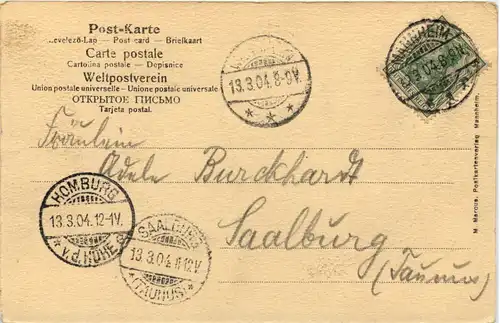 Post-Karte
Levelező-Lap — Post card — Briefkaart
Carte postale
Cartolina postale — Dopisnice
Weltpostverein
Union postale universelle - Unione postale universale
ОТКРЫТОЕ ПИСЬМО
Tarjeta postal.
13.3.04.8-9V.
MANNHEIM
3.04.8-9V.
Fräulein
Adele Burckhardt
Saalburg
(Taunus)
HOMBURG
13.3.04.12-1V.
* v.d.HÖHE
SAALBURG
13.3.04.
(TAUNUS)
M. Marcus, Postkartenverlag Mannheim.